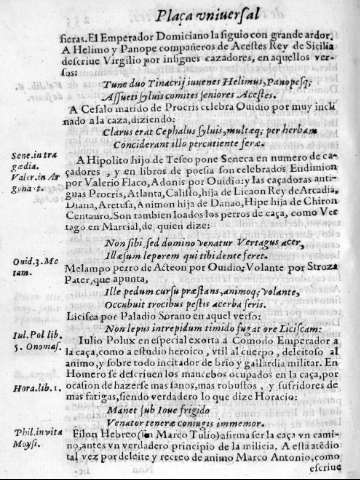 Plaça vniuersal
fieras. El Emperador Domiciano la siguio con grande ardor.
A Helimo y Panope compañeros de Acestes Rey de Sicilia
descriue Virgilio por insignes cazadores, en aquellos ver-
sos:
Tunc duo Tinacrij iuuenes Helimus, Panopesq;
Assueti syluis comites senioris Acestes.
A Cefalo marido de Procris celebra Ouidio por muy incli
nado a la caza, diziendo:
Clarus erat Cephalus syluis, multæq; per herbam
Conciderant illo percutiente feræ.
Sene. in tra
gedia.
Valer. in Ar
gona. 2.
A Hipolito hijo de Teseo pone Seneca en numero de ca-
çadores, y en libros de poesia son celebrados Endimion
por Valerio Flaco, Adonis por Ouidio: y las caçadoras anti-
guas Procris, Atlanta, Califto, hija de Licaon Rey de Arcadia,
Diana, Aretusa, Animon hija de Danao, Hipe hija de Chiron
Centauro. Son tambien loados los perros de caça, como Ver-
tago en Marcial, de quien dize:
Non sibi sed domino venatur Vertagus acer,
Illæsum leporem qui tibi dente feret.
Ouid. 3. Me
tam.
Melampo perro de Acteon por Ouidio; Volante por Stroza
Pater, que apunta,
Ille pedum cursu præstans, animoq; volante,
Occubuit trocibus pestis acerba feris.
Licisca por Paladio Sorano en aquel verso:
Non lepus intrepidum timido fugat ore Liciscam:
Iul. Pol lib.
5. Onomast.
Iulio Polux en especial exorta a Comodo Emperador a
la caça, como a estudio heroico, vtil al cuerpo, deleitoso al
animo, y sobre todo incitador de brio y gallardia militar. En
Homero se descriuen los mancebos ocupados en la caça, por
ocasion de hazerse mas sanos, mas robustos, y sufridores de
mas fatigas, siendo verdadero lo que dize Horacio:
Hora. lib. 1.
Manet sub Ioue frigido
Venator teneræ coniugis immemor.
Phil. in vita
Moysi.
Filon Hebreo (sin Marco Tulio) afirma ser la caça vn cami-
no, antes vn verdadero principio de la milicia. A esta atēdio
tal vez por deleite y recreo de animo Marco Antonio, como
escriue